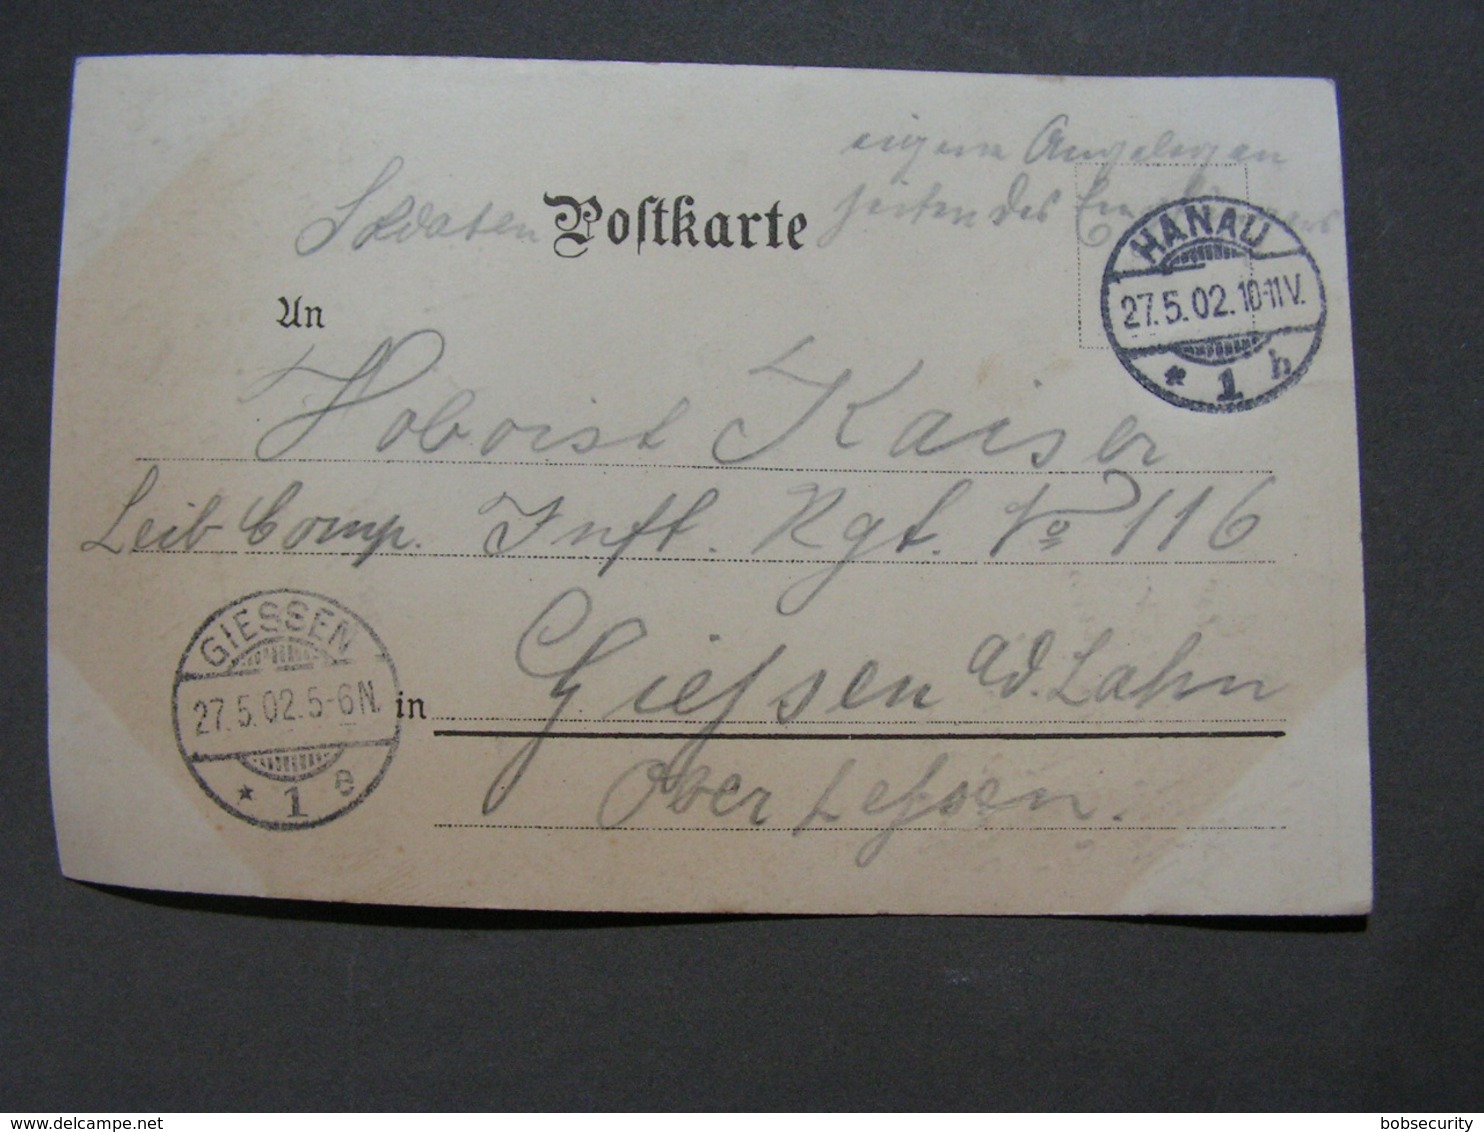 eigene Angelegen
heiten des Empfängers
Soldaten Postkarte
HANAU
27.5.02.10-11V.
* 1 h
An
Hoboist Kaiser
Leib Comp. Inft. Rgt. No 116
GIESSEN
27.5.02.5-6N.
* 1 e
in Gießen a/d. Lahn
Ober Heßen.
bobsecurity